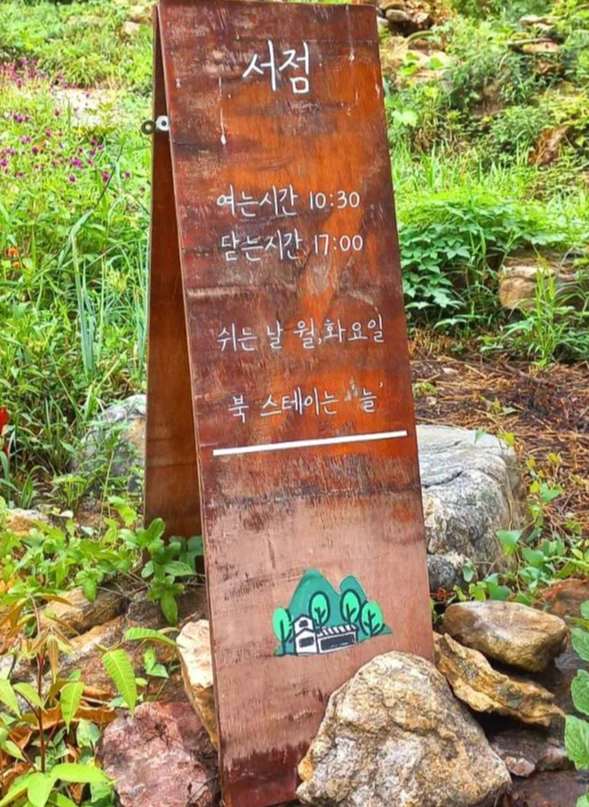 서점
여는시간 10:30
닫는시간 17:00
쉬는 날 월,화요일
북 스테이는 '늘'